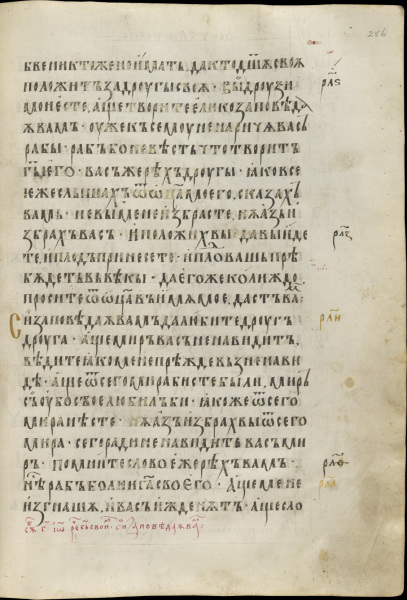 бве никтоже не имать, да кто дшѫ своѫ
положитъ за дроугы своѧ · вы дроузи
мои есте, аще творите елико заповѣда
ѫ вамъ · оуже къ семоу не наричѫ васъ
рабы · рабъ бо не вѣсть что творитъ
гь его · васъ же рѣхъ дроугы · ꙗко все
еже слышахъ ѿ ѡца моего, сказахъ
вамъ · не вы мене избрасте, нѫ азъ и
збрахъ васъ · и положихъ вы да вы иде
те, и плодъ принесете · и плод вашь прѣ
бѫдетъ въ вѣкы · да егоже колиждо
просите ѿ ѡца въ имѧ мое, дастъ вамъ
Си заповѣдаѫ вамъ да любите дроугъ
дроуга · аще миръ васъ ненавидитъ,
вѣдите ꙗко мене прѣжде възненави
дѣ · аще ѿ сего мира бисте были, миръ
оубо свое любилъ би · ꙗкоже ѿ сего
мира нѣсте · нѫ азъ избрах вы ѿ сего
мира · сего ради ненавидитъ васъ ми
ръ · помните слово еже рѣхъ вамъ ·
нѣ рабъ болии га своего · аще мене
изгнашѫ, и васъ ижденѫт · аще сло